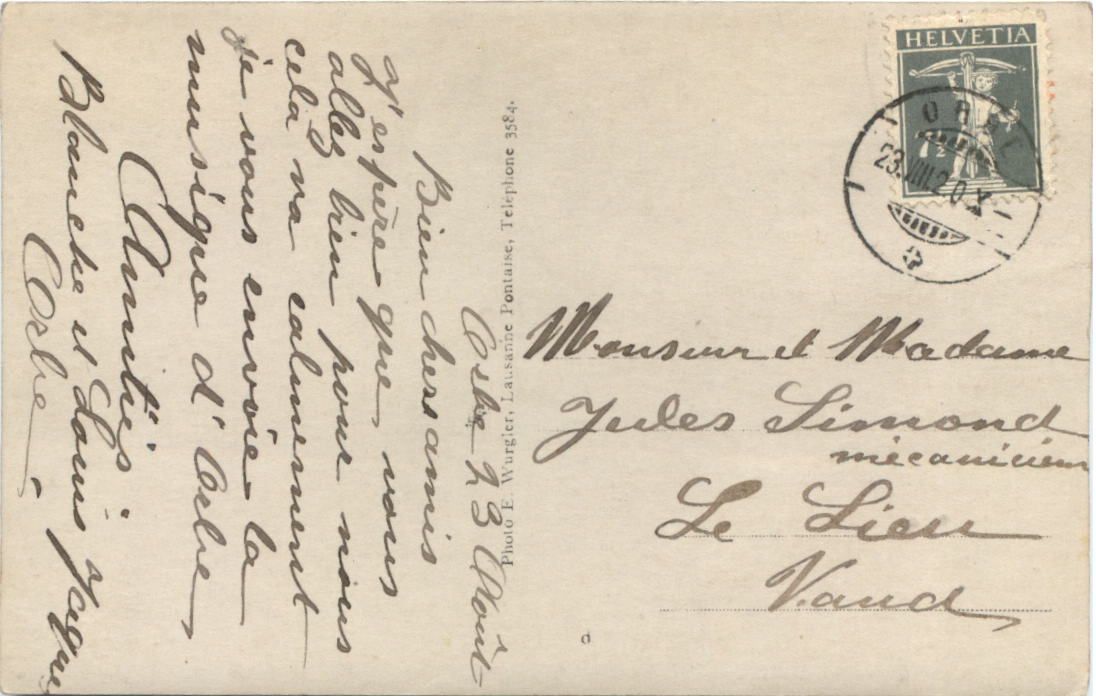 HELVETIA
7½
ORBE
23.VIII.20.X
Orbe 23 Août
Bien chers amis
J'espère que vous
allez bien pour nous
cela va calmement
je vous envoie la
musique d'Orbe
Amitiés
Blanche et Louis
Orbe
Photo E. Wurgler, Lausanne Pontaise, Téléphone 3584.
Monsieur et Madame
Jules Simond
mécanicien
Le Lieu
Vaud